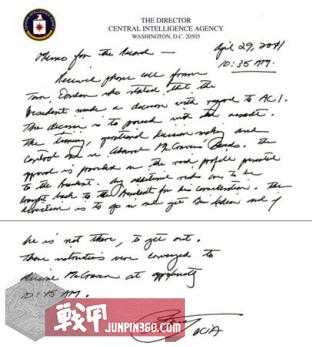 THE DIRECTOR
CENTRAL INTELLIGENCE AGENCY
WASHINGTON, D.C. 20505
April 29, 2011
10:35 AM.
Memo for the Record —
Received phone call from
Tom Donilon who stated that the
President made a decision with regard to AC1.
The decision is to proceed with the assault.
The timing, operational decision making and
control are in Admiral McRaven's hands. The
approval is provided on the risk profile presented
to the President. Any additional risks are to be
brought back to the President for his consideration. The
direction is to go in and get bin Laden and if
he is not there, to get out.
Those instructions were conveyed to
Admiral McRaven at approximately
10:45 AM.
DCIA
战甲
JUNPIN360.com